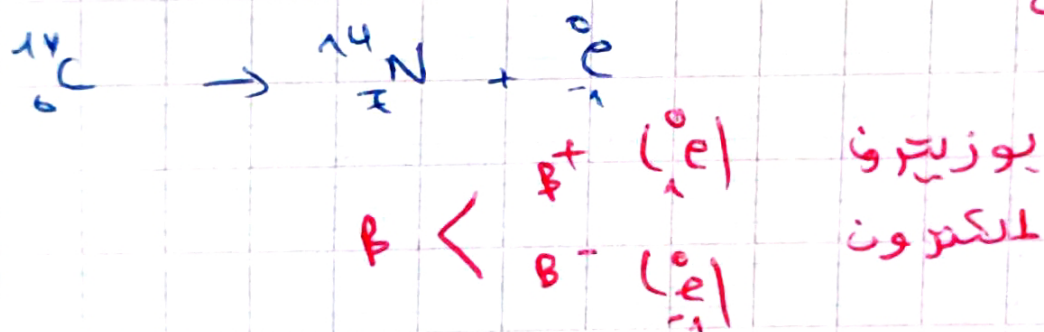 ¹⁴₆C → ¹⁴₇N + ⁰₋₁e
β⁺ (⁰₁e) بوزيترون
β <
β⁻ (⁰₋₁e) الكترون